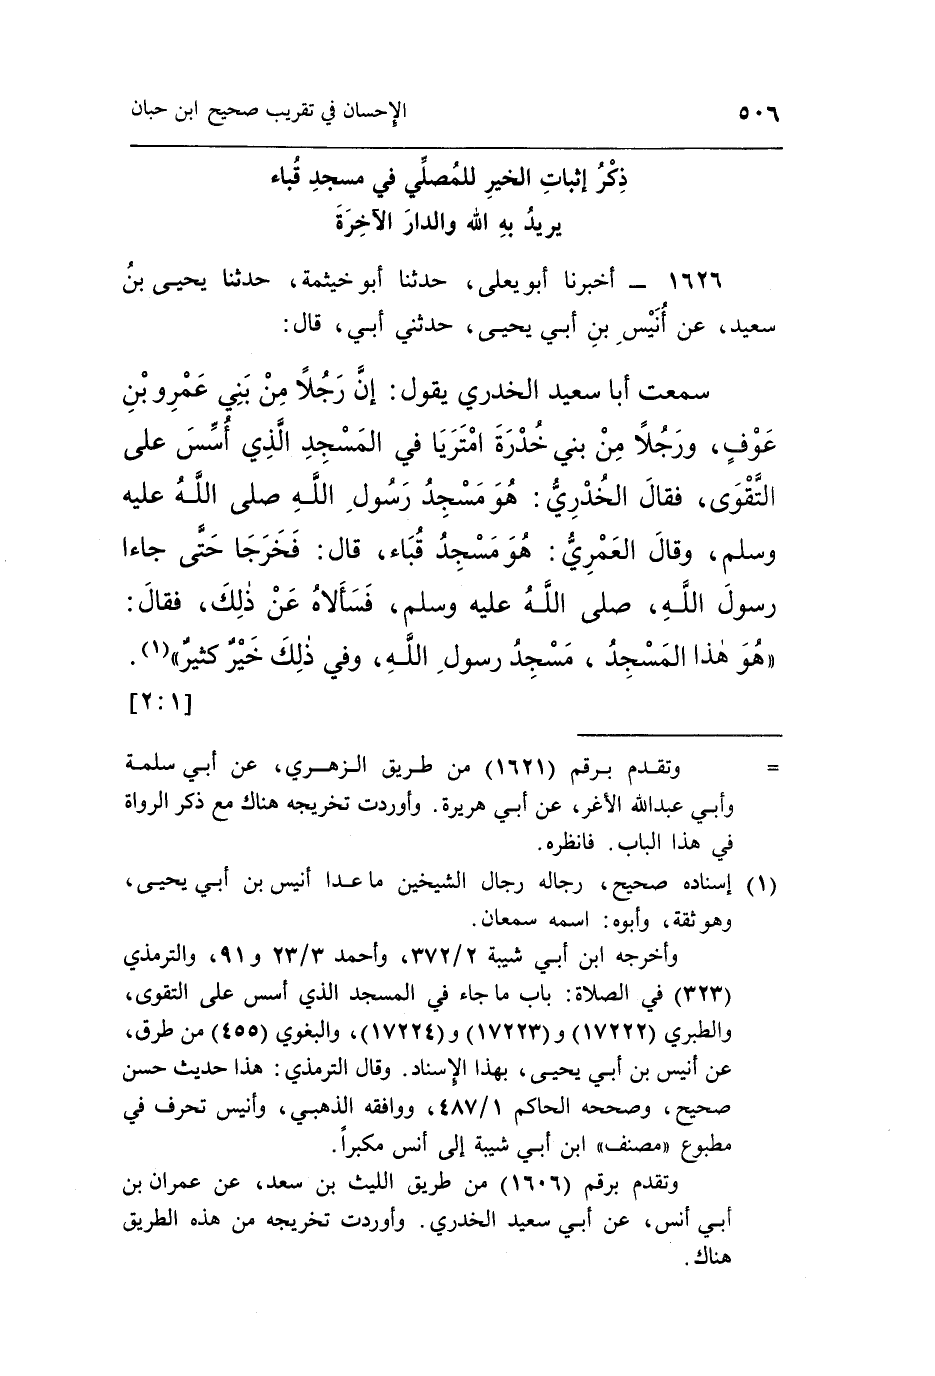 ٥٠٦ الإحسان في تقريب صحيح ابن حبان
ذِكْرُ إثباتِ الخيرِ للمُصلِّي في مسجدِ قُباء
يريدُ بهِ الله والدارَ الآخِرَةَ
١٦٢٦ ـ أخبرنا أبو يعلى، حدثنا أبو خيثمة، حدثنا يحيـى بنُ
سعيد، عن أُنَيْسِ بنِ أبـي يحيـى، حدثني أبـي، قال:
سمعت أبا سعيد الخدري يقول: إنَّ رَجُلاً مِنْ بَنِي عَمْرِو بْنِ
عَوْفٍ، ورَجُلاً مِنْ بني خُدْرَةَ امْتَرَيَا في المَسْجِدِ الَّذِي أُسِّسَ على
التَّقْوَى، فقالَ الخُدْرِيُّ: هُوَ مَسْجِدُ رَسُولِ اللَّهِ صلى اللَّهُ عليه
وسلم، وقالَ العَمْرِيُّ: هُوَ مَسْجِدُ قُبَاء، قال: فَخَرَجَا حَتَّى جاءا
رسولَ اللَّهِ، صلى اللَّهُ عليه وسلم، فَسَأَلاهُ عَنْ ذٰلِكَ، فقالَ:
«هُوَ هٰذا المَسْجِدُ، مَسْجِدُ رسولِ اللَّهِ، وفي ذٰلِكَ خَيْرٌ كثيرٌ»(١).
[٢:١]
= وتقدم برقم (١٦٢١) من طريق الزهري، عن أبـي سلمة
وأبـي عبدالله الأغر، عن أبـي هريرة. وأوردت تخريجه هناك مع ذكر الرواة
في هذا الباب. فانظره.
(١) إسناده صحيح، رجاله رجال الشيخين ما عدا أنيس بن أبـي يحيـى،
وهو ثقة، وأبوه: اسمه سمعان.
وأخرجه ابن أبـي شيبة ٣٧٢/٢، وأحمد ٢٣/٣ و ٩١، والترمذي
(٣٢٣) في الصلاة: باب ما جاء في المسجد الذي أسس على التقوى،
والطبري (١٧٢٢٢) و (١٧٢٢٣) و (١٧٢٢٤)، والبغوي (٤٥٥) من طرق،
عن أنيس بن أبـي يحيـى، بهذا الإسناد. وقال الترمذي: هذا حديث حسن
صحيح، وصححه الحاكم ٤٨٧/١، ووافقه الذهبـي، وأنيس تحرف في
مطبوع «مصنف» ابن أبـي شيبة إلى أنس مكبراً.
وتقدم برقم (١٦٠٦) من طريق الليث بن سعد، عن عمران بن
أبـي أنس، عن أبـي سعيد الخدري. وأوردت تخريجه من هذه الطريق
هناك.